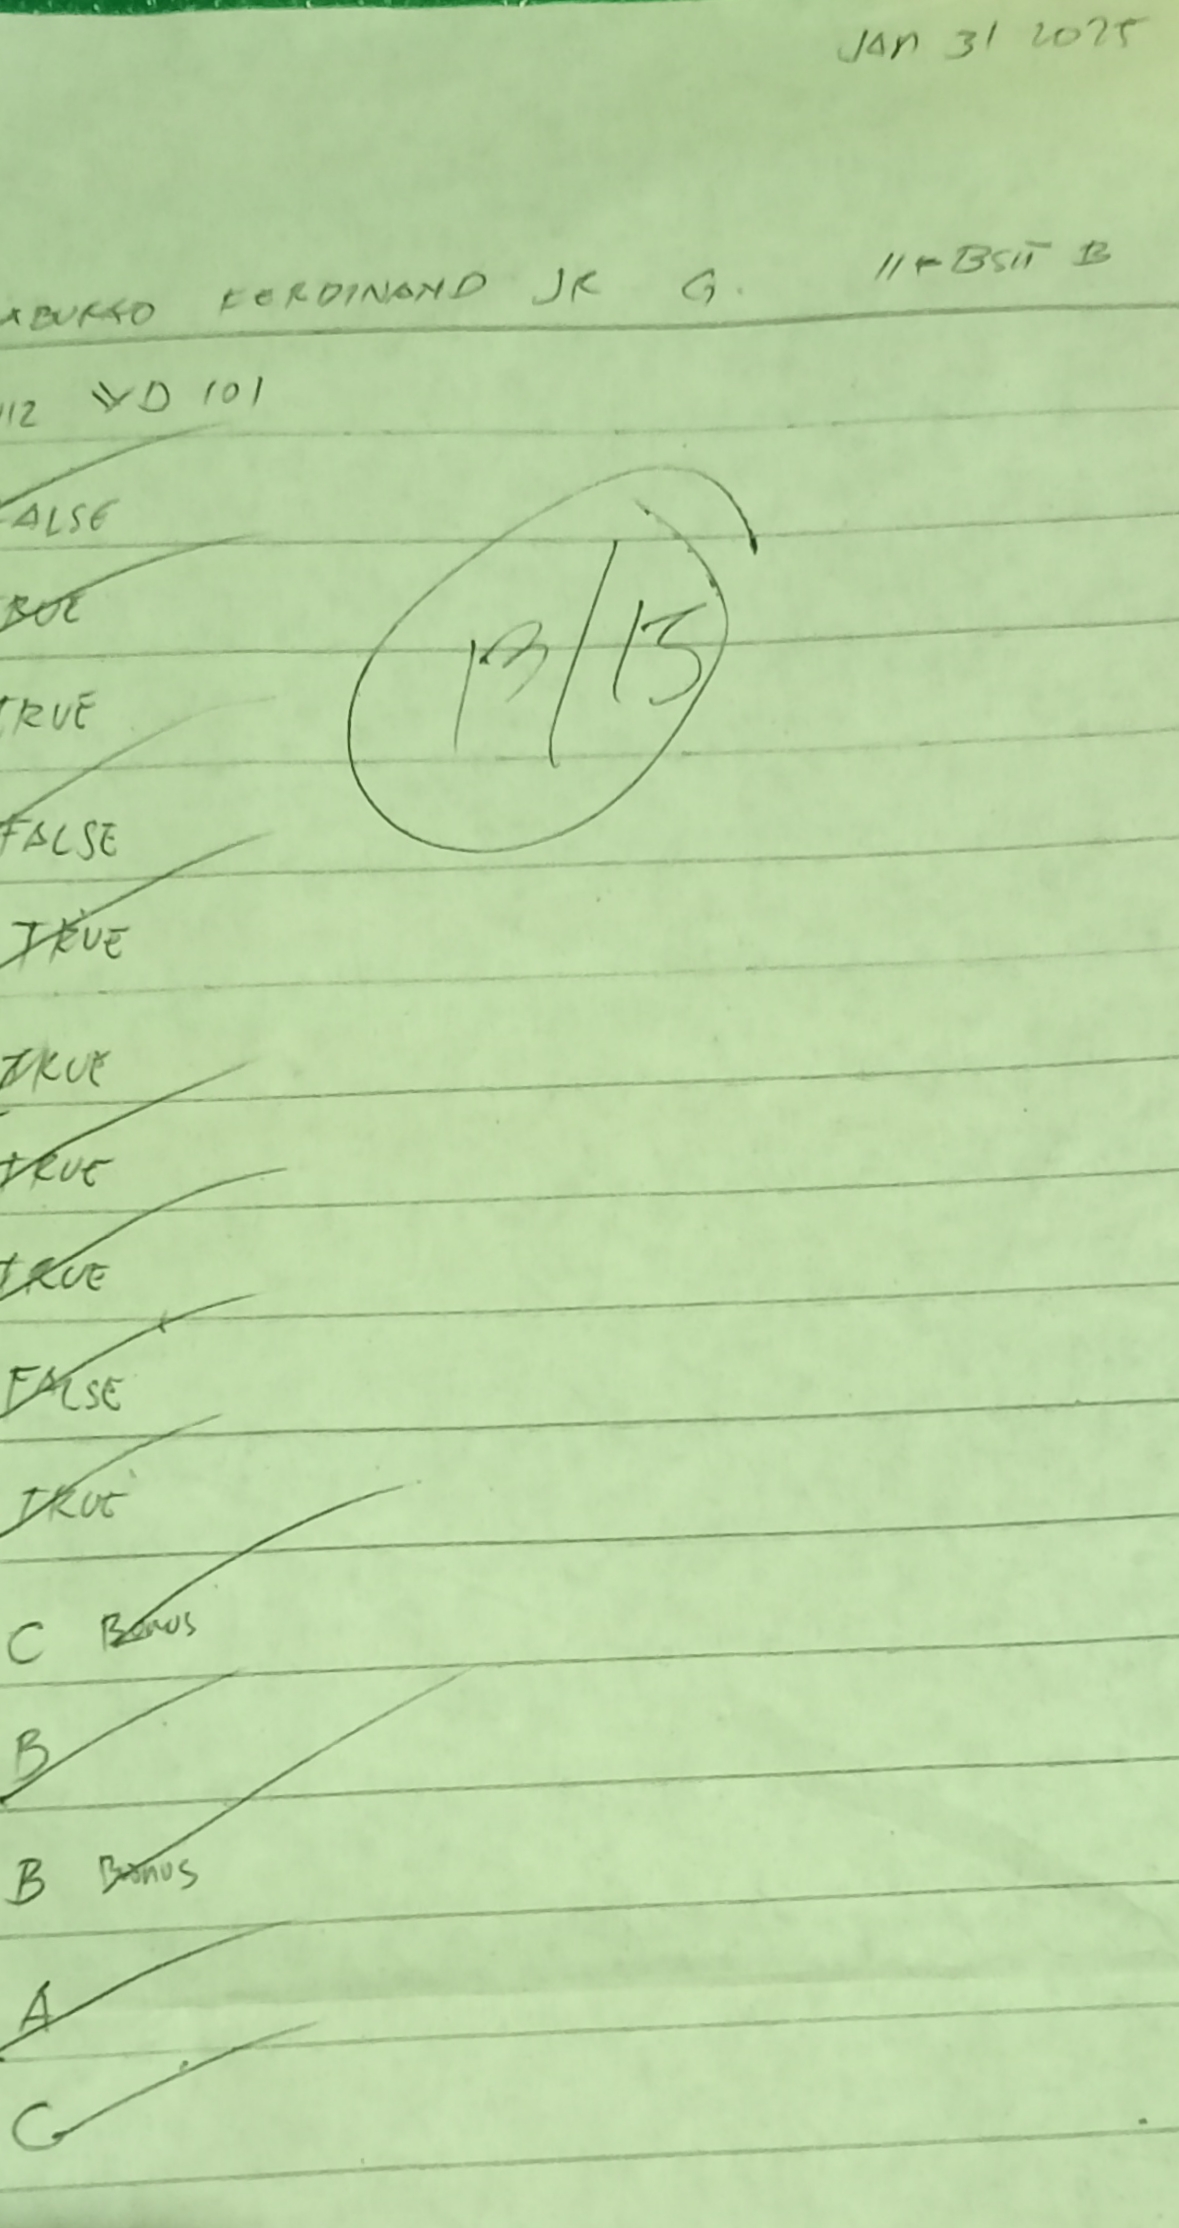 JAN 31 2025
FERDINAND JR G.
BSIT B
WD 101
ALSE
RUE
TRUE
FALSE
TRUE
TRUE
TRUE
TRUE
FALSE
TRUE
C Bonus
B
B Bonus
A
C
13/15